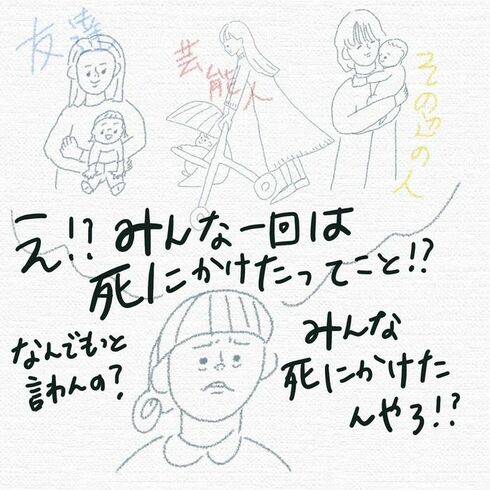 友達
芸能人
その辺の人
え!?みんな一回は
死にかけたってこと!?
なんでもっと
言わんの?
みんな
死にかけた
んやろ!?